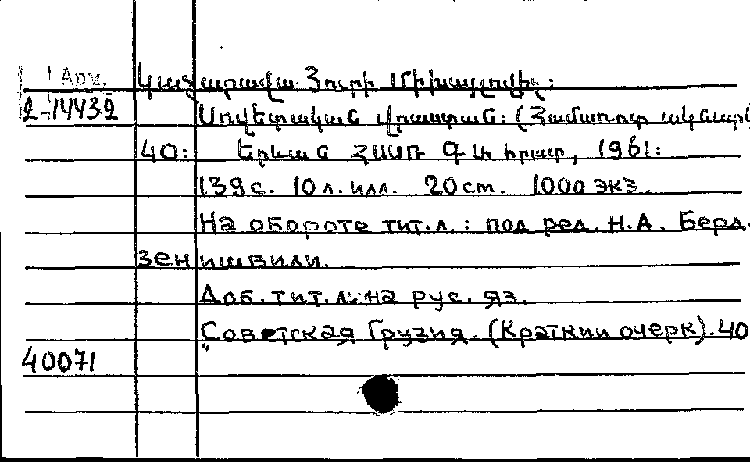 Арм.
Կաչարավա Յուրի Միխայլովիչ:
2-14432
Սովետական Վրաստան: (Համառոտ ակնարկ)
40: Երևան ՀՍՍՌ ԳԱ հրատ, 1961:
139 с. 10 л. илл. 20 cm. 1000 экз.
На обороте тит.л.: под ред. Н.А. Берд-
зенишвили.
Доб. тит.л. на рус. яз.
"Советская Грузия. (Краткий очерк). 40
40071